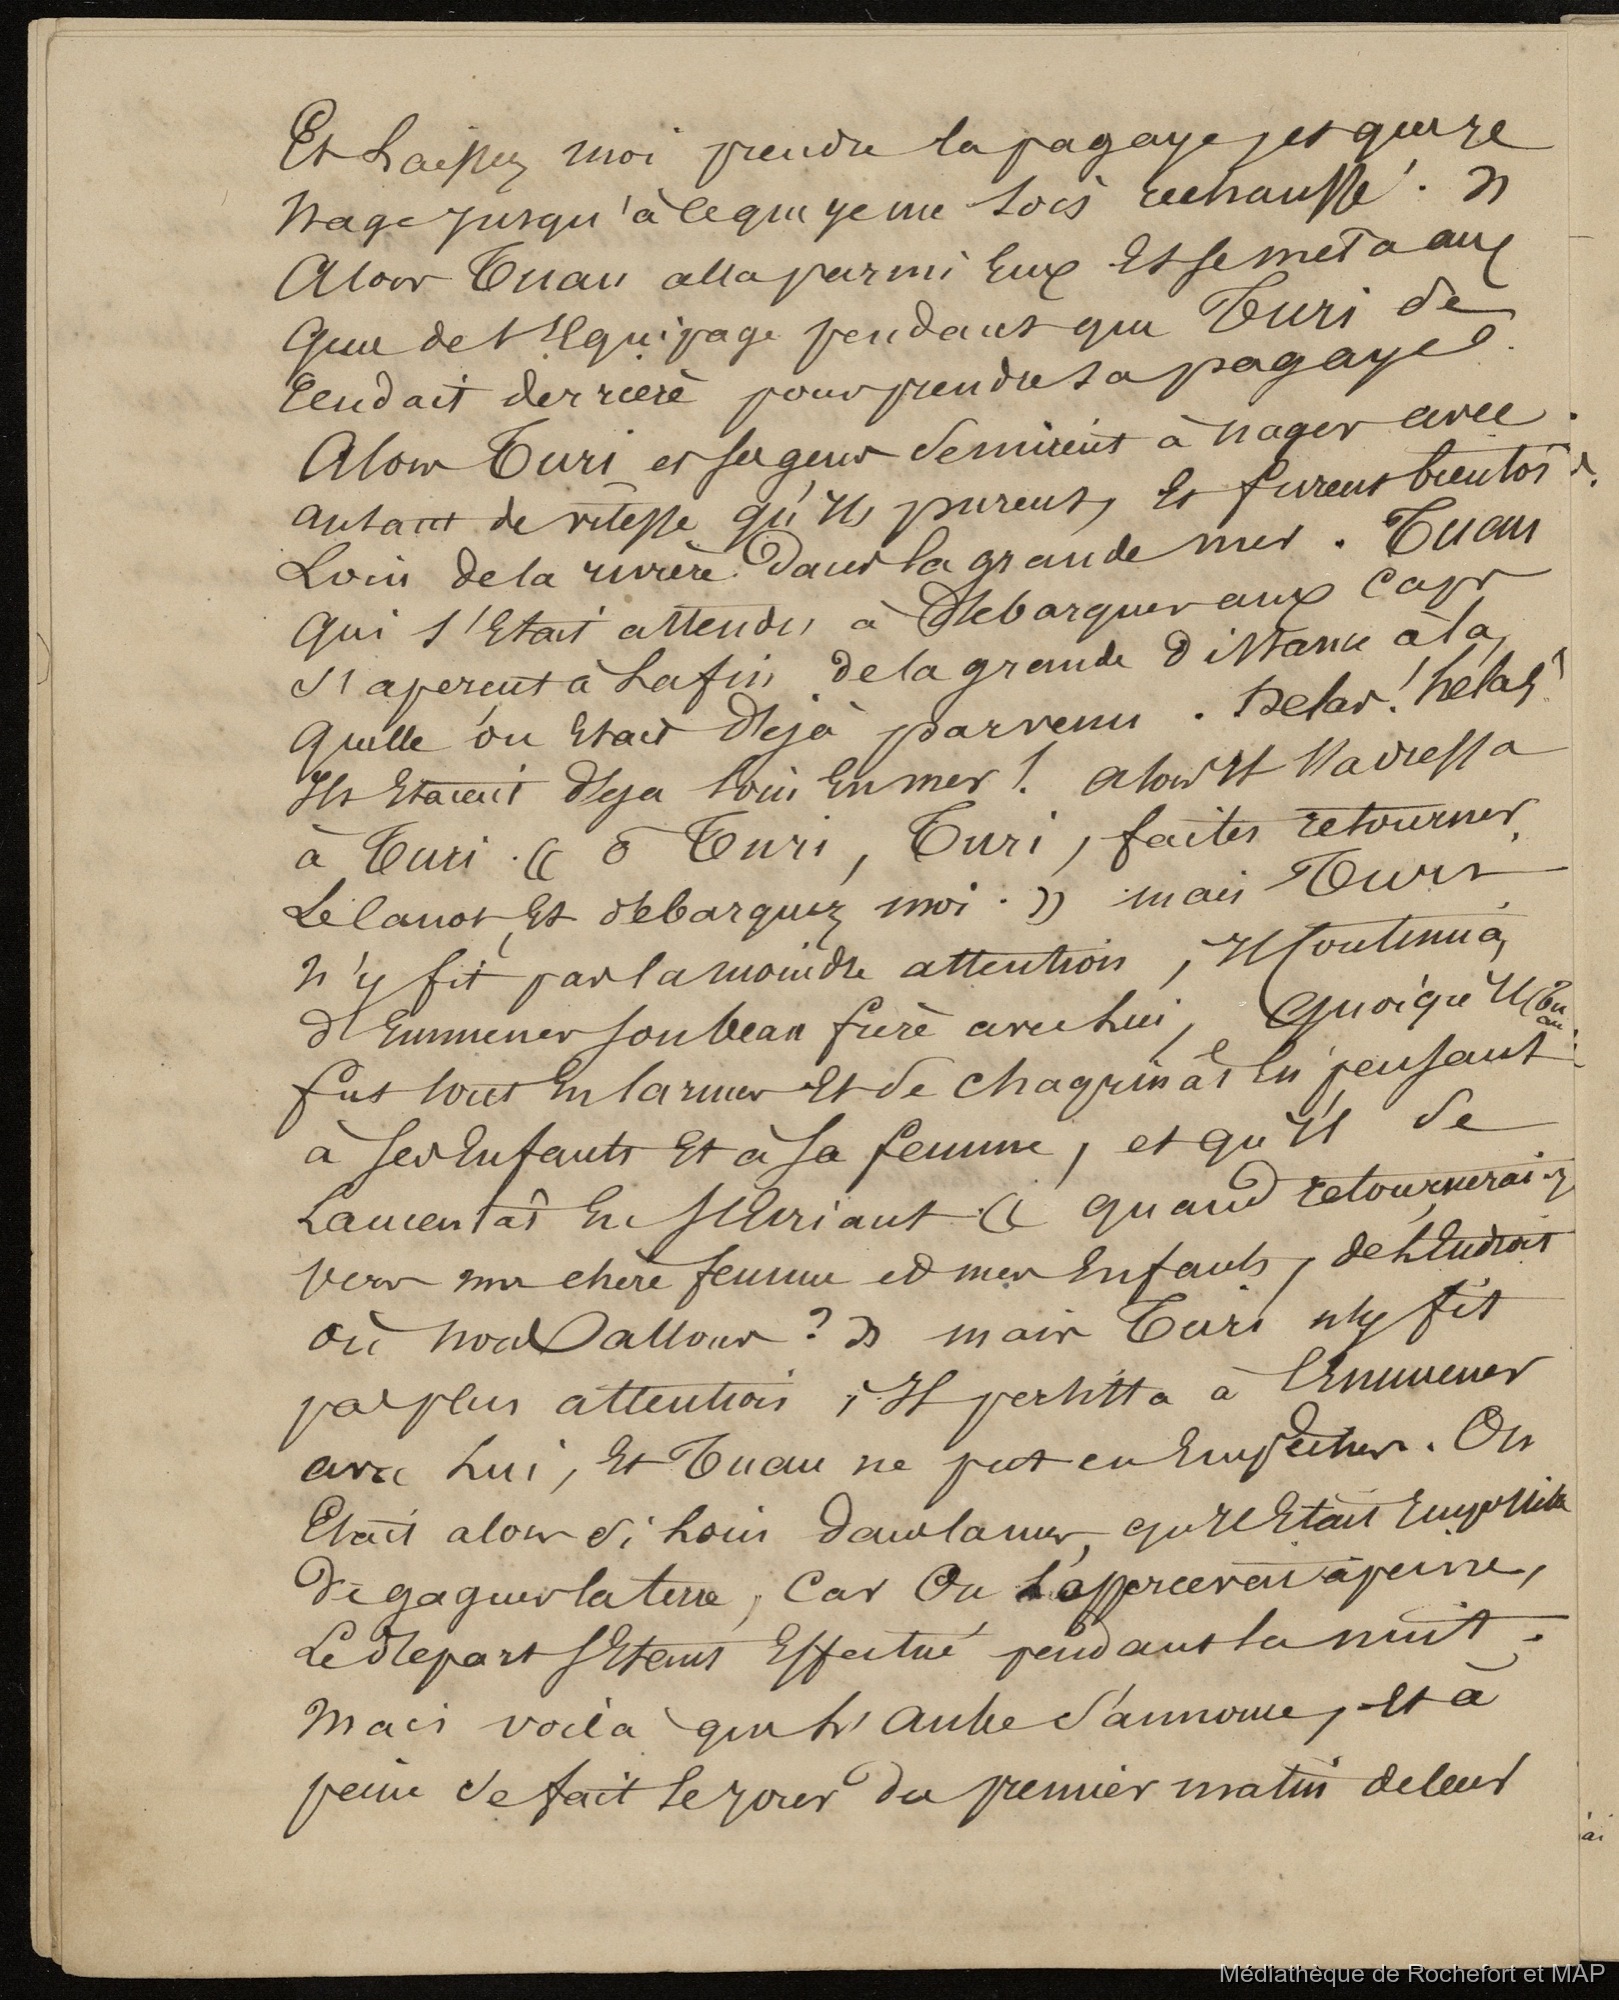 Et Laissez moi prendre la pagaye, et que je
Nage jusqu'à ce que je me sois rechauffé. »
Alors Tuau alla parmi Eux Et se met à au
que de l'Equipage pendant que Turi se
Rendait derrière pour prendre sa pagaye.
Alors Turi et ses gens se mirent à nager avec
autant de vitesse qu'ils purent, Et furent bientôt
Loin de la rivière dans la grande mer. Tuau
qui s'Etait attendu à Debarquer aux Caps
s'aperçut à La fin de la grande Distance à la
quelle on Etait Dejà parvenu. Helas! helas!
Ils Etaient Deja loin En mer! alors Il s'adressa
à Turi. « ô Turi, Turi, faites retourner
Le Canot, Et debarquez moi. » mais Turi
n'y fit pas la moindre attention, Il Continua
d'Emmener son beau frère avec Lui, quoiqu'Il (Tu
au
fut tout En larmes Et se chagrinât En pensant
à ses Enfants Et à sa femme, et qu'Il se
Lamentât En s'Ecriant « quand retournerai-j
vers ma chère femme et mes Enfants, de L'Endroit
où nous allons? » mais Turi n'y fit
pas plus attention, Il persista à l'Emmener
avec Lui, Et Tuau ne put en Empêcher. On
Etait alors si Loin dans la mer, qu'Il Etait Impossible
De gagner la terre, Car On L'appercevait à peine,
Le Depart s'Etant Effectué pendant la nuit.
Mais voilà que L'Aube s'annonce, Et à
peine se fait Le jour du premier matin de leur
Médiathèque de Rochefort et MAP